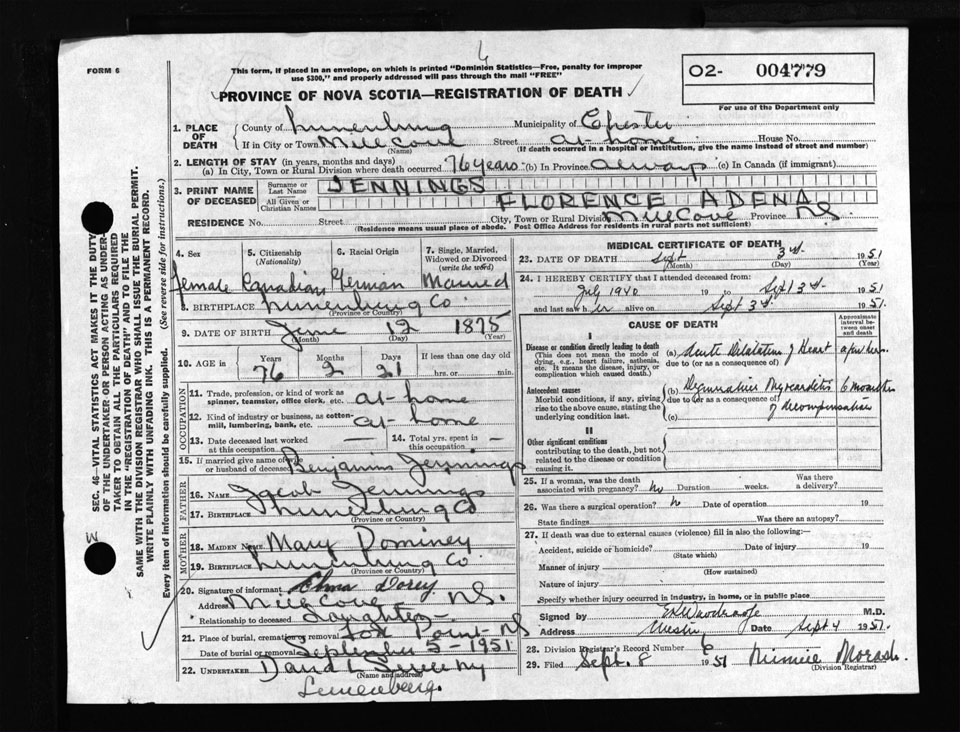 FORM 6
This form, if placed in an envelope, on which is printed "Dominion Statistics—Free, penalty for improper
use $300," and properly addressed will pass through the mail "FREE"
02- 004779
For use of the Department only
PROVINCE OF NOVA SCOTIA—REGISTRATION OF DEATH
1. PLACE OF DEATH
County of Lunenburg Municipality of Chester
If in City or Town Mill Cove Street at home House No.
(Name) (If death occurred in a hospital or institution, give the name instead of street and number)
2. LENGTH OF STAY (in years, months and days)
(a) In City, Town or Rural Division where death occurred 76 years (b) In Province always (c) In Canada (if immigrant)
3. PRINT NAME OF DECEASED
Surname or Last Name JENNINGS
All Given or Christian Names FLORENCE ADENA
RESIDENCE No. Street City, Town or Rural Division Mill Cove Province N.S.
(Residence means usual place of abode. Post Office Address for residents in rural parts not sufficient)
4. Sex 5. Citizenship (Nationality) 6. Racial Origin 7. Single, Married, Widowed or Divorced (write the word)
female Canadian German Married
8. BIRTHPLACE Lunenburg Co.
(Province or Country)
9. DATE OF BIRTH June 12 1875
(Month) (Day) (Year)
10. AGE in Years Months Days If less than one day old
76 2 21 hrs. or min.
OCCUPATION
11. Trade, profession, or kind of work as spinner, teamster, office clerk, etc. at-home
12. Kind of industry or business, as cotton-mill, lumbering, bank, etc. at-home
13. Date deceased last worked at this occupation — 14. Total yrs. spent in this occupation —
15. If married give name of wife or husband of deceased Benjamin Jennings
FATHER
16. NAME Jacob Jennings
17. BIRTHPLACE Lunenburg Co
(Province or Country)
MOTHER
18. MAIDEN NAME Mary Dominey
19. BIRTHPLACE Lunenburg Co.
(Province or Country)
20. Signature of informant Dorey
Address Mill Cove N.S.
Relationship to deceased Daughter
21. Place of burial, cremation or removal Fox Point N.S
Date of burial or removal September 5 - 1951
22. UNDERTAKER David L Sweeny
(Name and address)
Lunenburg.
MEDICAL CERTIFICATE OF DEATH
23. DATE OF DEATH Sept 3rd 1951
(Month) (Day) (Year)
24. I HEREBY CERTIFY that I attended deceased from:
July 1940 19 to Sept 3rd 1951
and last saw her alive on Sept 3rd 1951.
CAUSE OF DEATH
Approximate interval between onset and death
I
Disease or condition directly leading to death
(This does not mean the mode of dying, e.g., heart failure, asthenia, etc. It means the disease, injury, or complication which caused death.)
(a) Acute Dilatation of Heart a few hrs.
due to (or as a consequence of)
Antecedent causes
Morbid conditions, if any, giving rise to the above cause, stating the underlying condition last.
(b) Degenerative Myocarditis 6 months
due to (or as a consequence of)
of decompensation
(c)
II
Other significant conditions
contributing to the death, but not related to the disease or condition causing it.
25. If a woman, was the death associated with pregnancy? No Duration weeks. Was there a delivery?
26. Was there a surgical operation? no Date of operation 19
State findings Was there an autopsy?
27. If death was due to external causes (violence) fill in also the following:
Accident, suicide or homicide? Date of injury 19
(State which)
Manner of injury
(How sustained)
Nature of injury
Specify whether injury occurred in industry, in home, or in public place
Signed by M.D.
Address Chester Date Sept 4 1951.
28. Division Registrar's Record Number 6
29. Filed Sept. 8 1951 Minnie Morash.
(Division Registrar)
SEC. 46—VITAL STATISTICS ACT MAKES IT THE DUTY
OF THE UNDERTAKER OR PERSON ACTING AS UNDER-
TAKER TO OBTAIN ALL THE PARTICULARS REQUIRED
IN THE "REGISTRATION OF DEATH" AND TO FILE THE
SAME WITH THE DIVISION REGISTRAR WHO SHALL ISSUE THE BURIAL PERMIT.
WRITE PLAINLY WITH UNFADING INK. THIS IS A PERMANENT RECORD.
Every item of information should be carefully supplied. (See reverse side for instructions.)
W